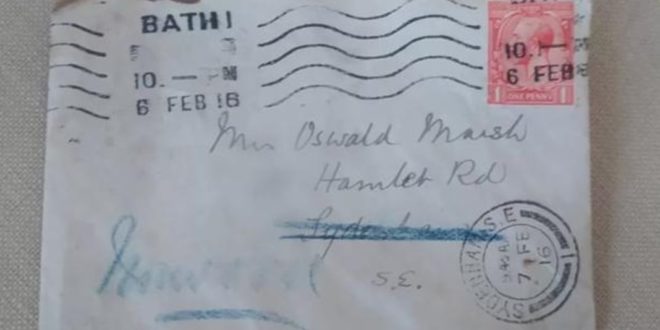 BATH
10. — PM
6 FEB 16
10.
6 FEB
1 ONE PENNY 1
Mrs Oswald Marsh
Hamlet Rd
Sydenham
S.E.
SYDENHAM. S.E
7 FE
16